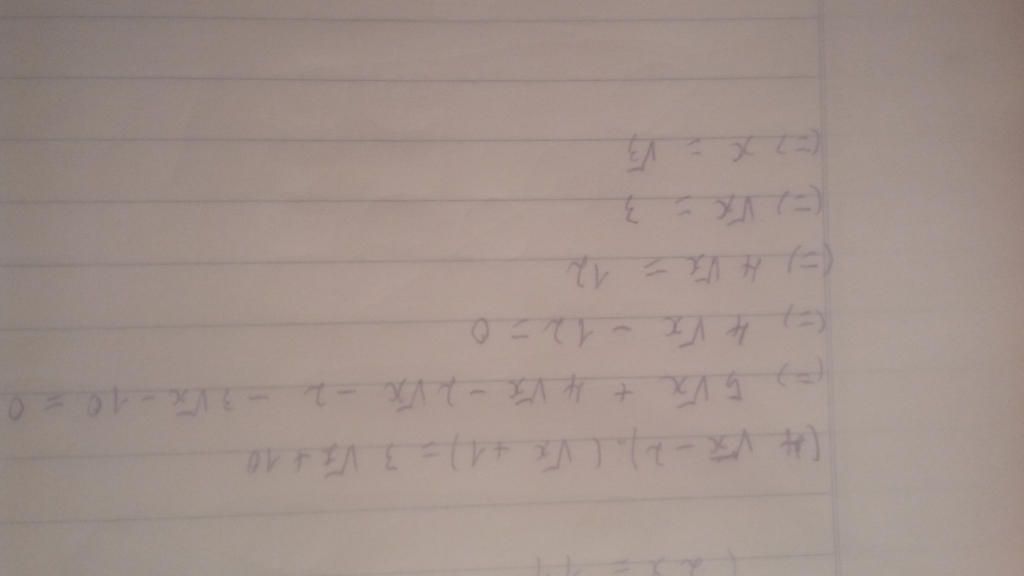 2x = 11
(4 √x - 2). (√x + 1) = 3 √x + 10
(=) 5 √x + 4 √x - 2 √x - 2 - 3 √x - 10 = 0
(=) 4 √x - 12 = 0
(=) 4 √x = 12
(=) √x = 3
(=) x = √3